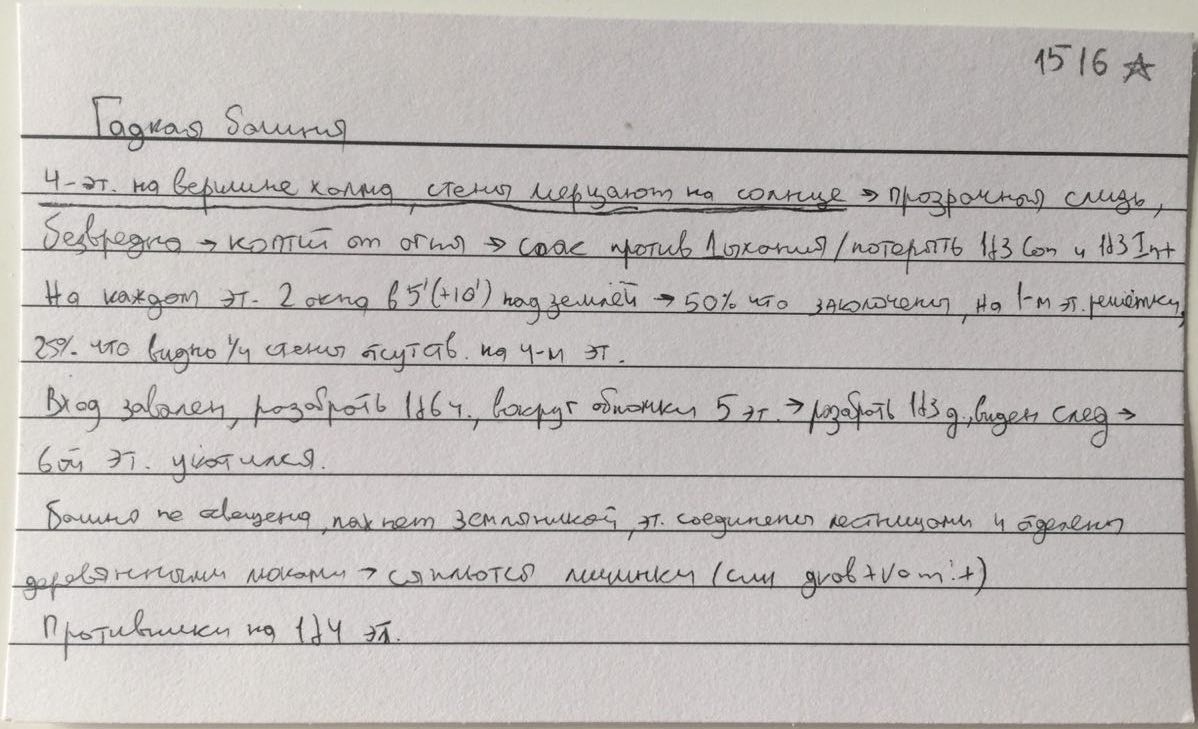 1516 ☆
Гадкая башня
4-эт. на вершине холма, стены мерцают на солнце → прозрачная слизь,
безвредна → коптит от огня → спас против Дыхания/потерять 1d3 Con и 1d3 Int
На каждом эт. 2 окна в 5'(+10') над землёй → 50% что заколочены, на 1-м эт. решётки,
25% что видно 1/4 стены отсутств. на 4-м эт.
Вход завален, разобрать 1d6 ч., вокруг обломки 5 эт. → разобрать 1d3 д., виден след →
6ой эт. укатился.
Башня не освещена, пахнет земляникой, эт. соединены лестницами и отделены
деревянными люками → сыплются личинки (см grab+vomit)
Противники на 1d4 эт.